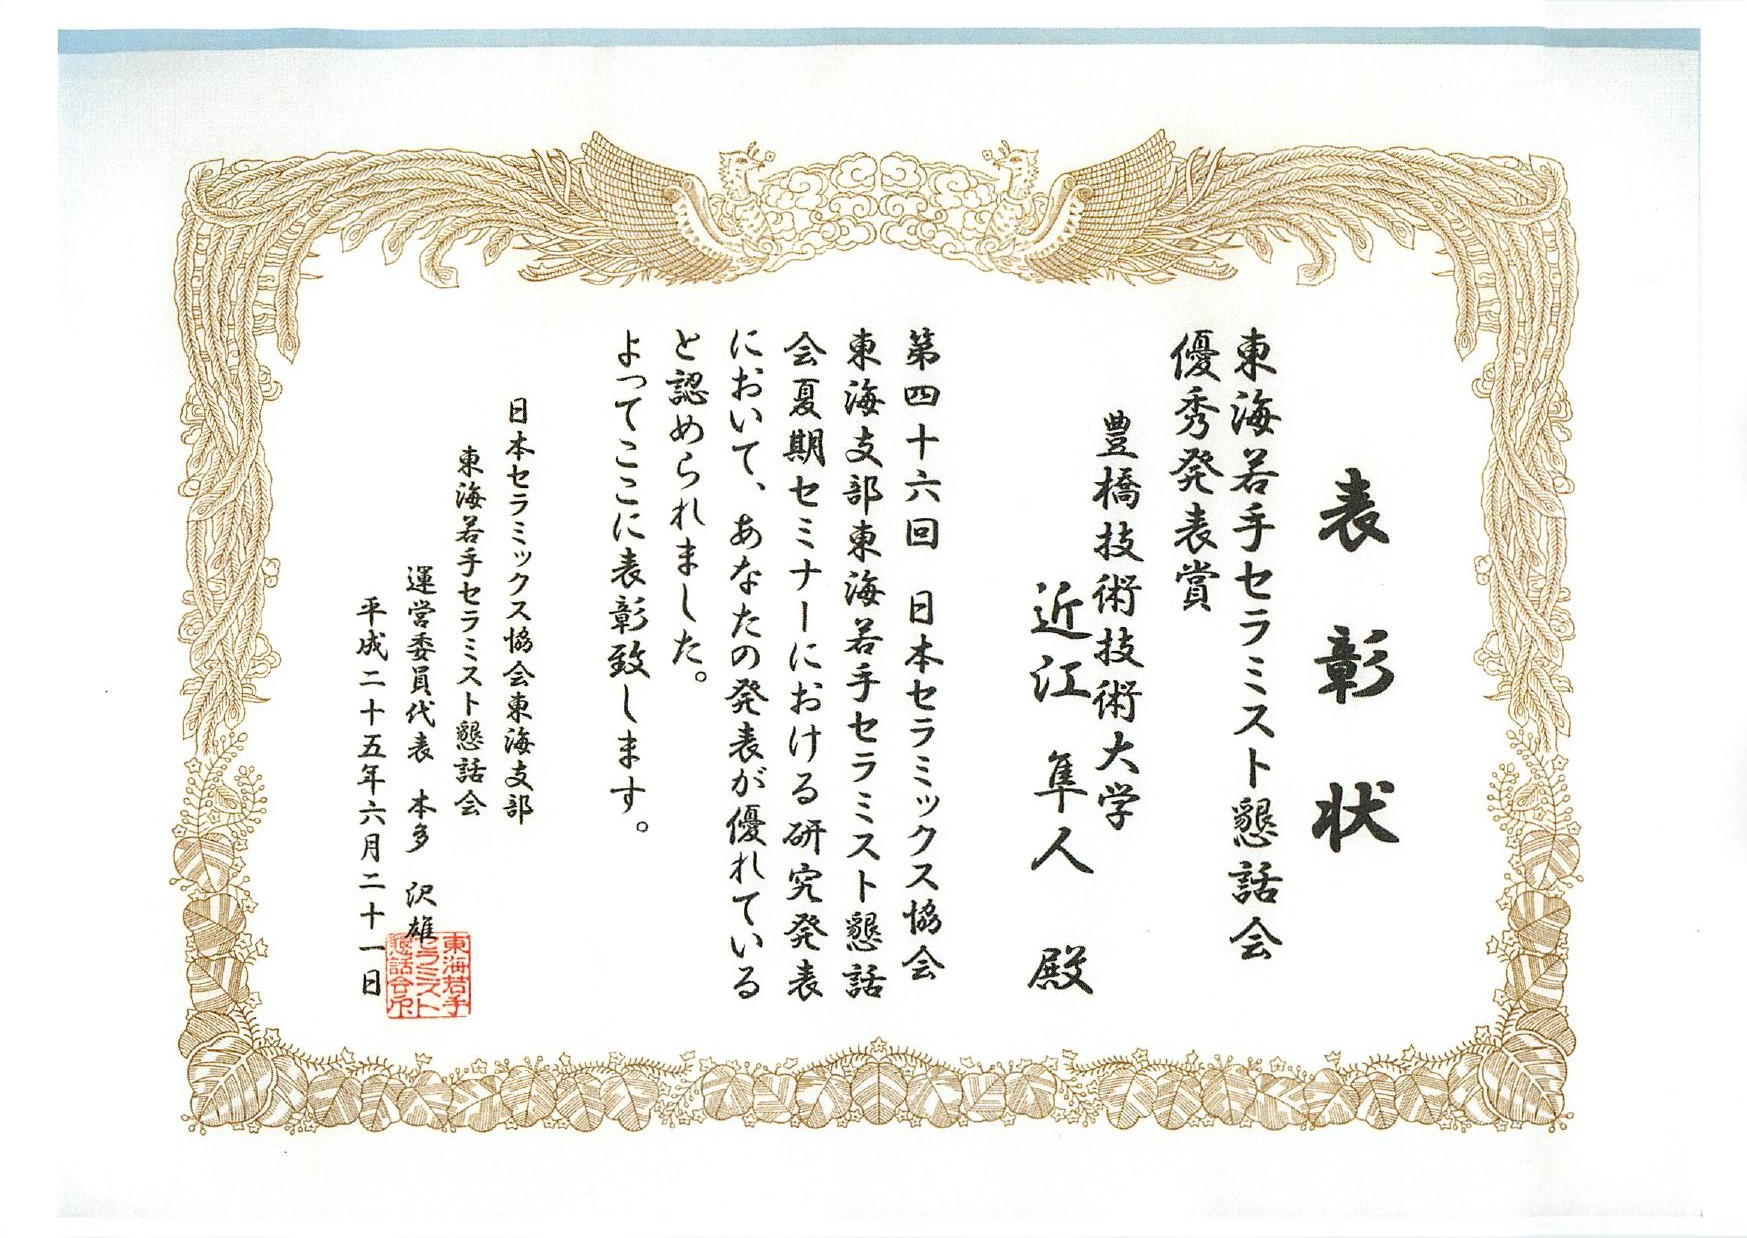 表彰状
東海若手セラミスト懇話会
優秀発表賞
豊橋技術技術大学
近江 隼人 殿
第四十六回 日本セラミックス協会
東海支部東海若手セラミスト懇話
会夏期セミナーにおける研究発表
において、あなたの発表が優れている
と認められました。
よってここに表彰致します。
日本セラミックス協会東海支部
東海若手セラミスト懇話会
運営委員代表 本多 沢雄
平成二十五年六月二十一日
東海若手
セラミスト
懇話会印